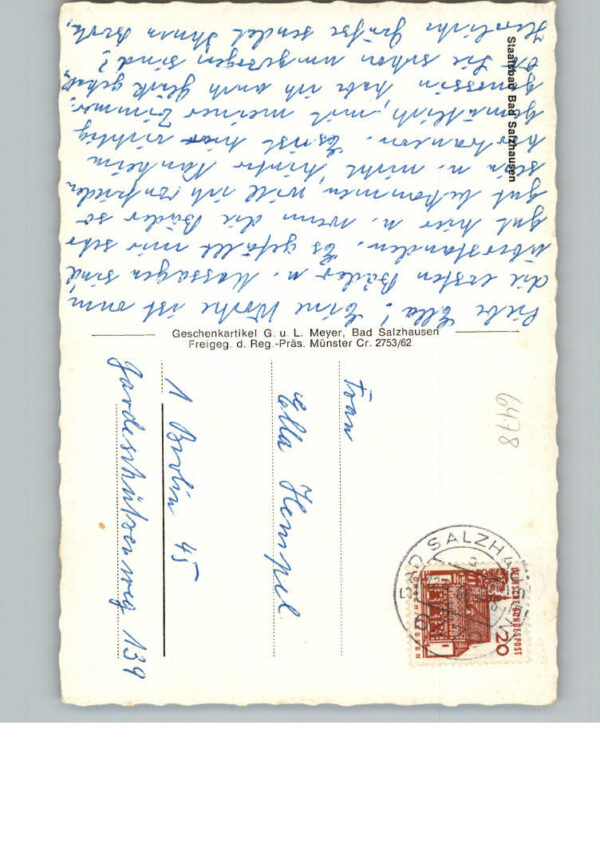 Staatsbad Bad Salzhausen
Liebe Ella! Eine Woche ist um
die ersten Bäder u. Massagen sind
überstanden. Es gefällt mir sehr
gut hier u. wenn die Bäder so
gut bekommen, will ich zufrieden
sein u. nicht hinter Nauheim
hertrauern. Es ist hier richtig
gemütlich, mit meiner Zimmer-
genossin habe ich auch Glück gehabt.
Ob Sie schon umgezogen sind?
Herzliche Grüße sendet Ihnen
Geschenkartikel G. u. L. Meyer, Bad Salzhausen
Freigeg. d. Reg.-Präs. Münster Cr. 2753/62
Frau
Ella Hempel
1 Berlin 45
Gardeschützenweg 139
6478
BAD SALZHA
DEUTSCHE BUNDESPOST
20